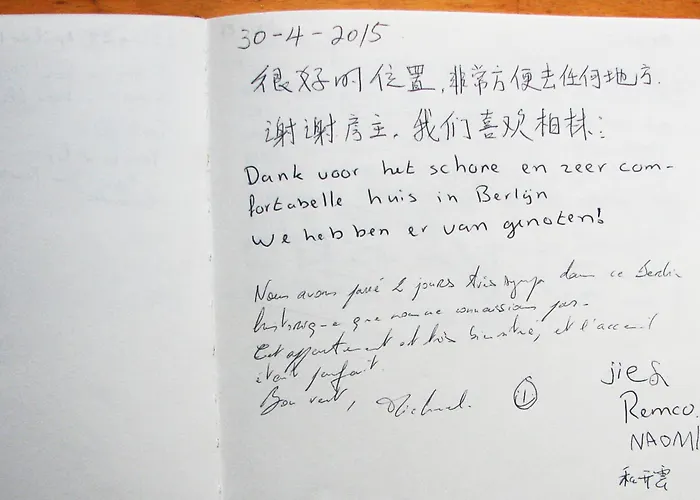 30-4-2015
很好的位置,非常方便去任何地方.
谢谢房主,我们喜欢柏林:
Dank voor het schone en zeer com-
fortabelle huis in Berlijn
We hebben er van genoten!
Nous avons passé 2 jours très sympa dans ce Berlin
historique que nous ne connaissions pas.
Cet appartement est très bien situé, et l'accueil
était parfait.
Bon vent, Michael.
jie &
Remco.
NAOMI